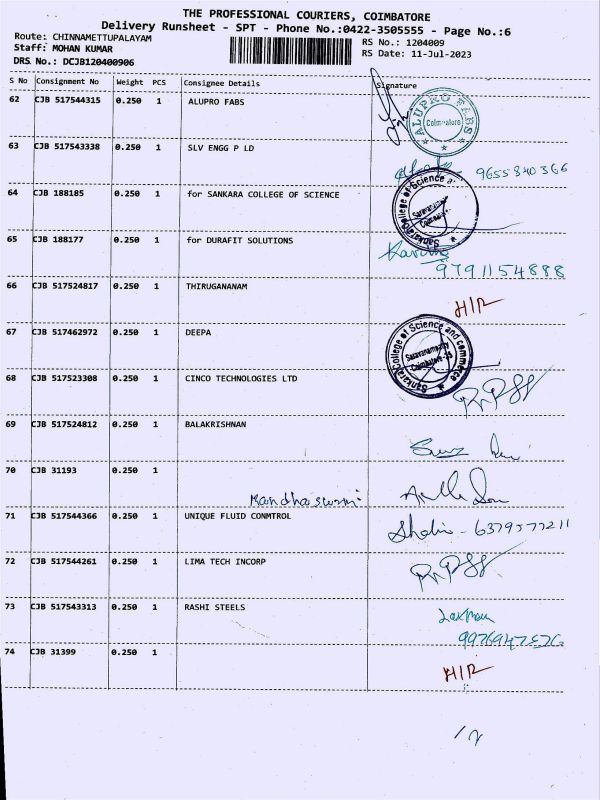 THE PROFESSIONAL COURIERS, COIMBATORE
Delivery Runsheet - SPT - Phone No.:0422-3505555 - Page No.:6
Route: CHINNAMETTUPALAYAM
Staff: MOHAN KUMAR
DRS No.: DCJB120400906
RS No.: 1204009
RS Date: 11-Jul-2023
S No Consignment No Weight PCS Consignee Details Signature
62 CJB 517544315 0.250 1 ALUPRO FABS
ALUPRO FABS
Coimbatore
63 CJB 517543338 0.250 1 SLV ENGG P LD
9655840366
64 CJB 188185 0.250 1 for SANKARA COLLEGE OF SCIENCE
65 CJB 188177 0.250 1 for DURAFIT SOLUTIONS
9791154888
66 CJB 517524817 0.250 1 THIRUGANANAM
H/R
67 CJB 517462972 0.250 1 DEEPA
Sankara College of Science and commerce
Saravanampatty
Coimbatore - 35
68 CJB 517523308 0.250 1 CINCO TECHNOLOGIES LTD
69 CJB 517524812 0.250 1 BALAKRISHNAN
70 CJB 31193 0.250 1
Kandhaswami
71 CJB 517544366 0.250 1 UNIQUE FLUID CONMTROL
6379577211
72 CJB 517544261 0.250 1 LIMA TECH INCORP
73 CJB 517543313 0.250 1 RASHI STEELS
Laxman
74 CJB 31399 0.250 1
H/R